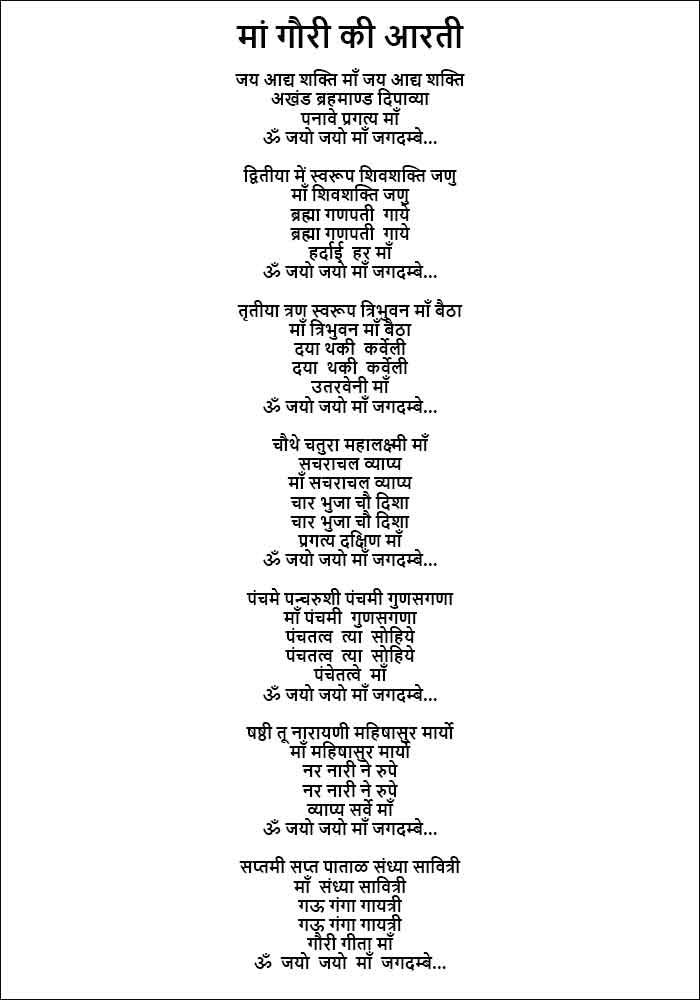 मां गौरी की आरती
जय आद्य शक्ति माँ जय आद्य शक्ति
अखंड ब्रहमाण्ड दिपाव्या
पनावे प्रगत्य माँ
ॐ जयो जयो माँ जगदम्बे...
द्वितीया में स्वरूप शिवशक्ति जणु
माँ शिवशक्ति जणु
ब्रह्मा गणपती गाये
ब्रह्मा गणपती गाये
हर्दाई हर माँ
ॐ जयो जयो माँ जगदम्बे...
तृतीया त्रण स्वरूप त्रिभुवन माँ बैठा
माँ त्रिभुवन माँ बैठा
दया थकी कर्वेली
दया थकी कर्वेली
उतरवेनी माँ
ॐ जयो जयो माँ जगदम्बे...
चौथे चतुरा महालक्ष्मी माँ
सचराचल व्याप्य
माँ सचराचल व्याप्य
चार भुजा चौ दिशा
चार भुजा चौ दिशा
प्रगत्य दक्षिण माँ
ॐ जयो जयो माँ जगदम्बे...
पंचमे पन्चरुशी पंचमी गुणसगणा
माँ पंचमी गुणसगणा
पंचतत्व त्या सोहिये
पंचतत्व त्या सोहिये
पंचेतत्वे माँ
ॐ जयो जयो माँ जगदम्बे...
षष्ठी तू नारायणी महिषासुर मार्यो
माँ महिषासुर मार्यो
नर नारी ने रुपे
नर नारी ने रुपे
व्याप्य सर्वे माँ
ॐ जयो जयो माँ जगदम्बे...
सप्तमी सप्त पाताळ संध्या सावित्री
माँ संध्या सावित्री
गऊ गंगा गायत्री
गऊ गंगा गायत्री
गौरी गीता माँ
ॐ जयो जयो माँ जगदम्बे...